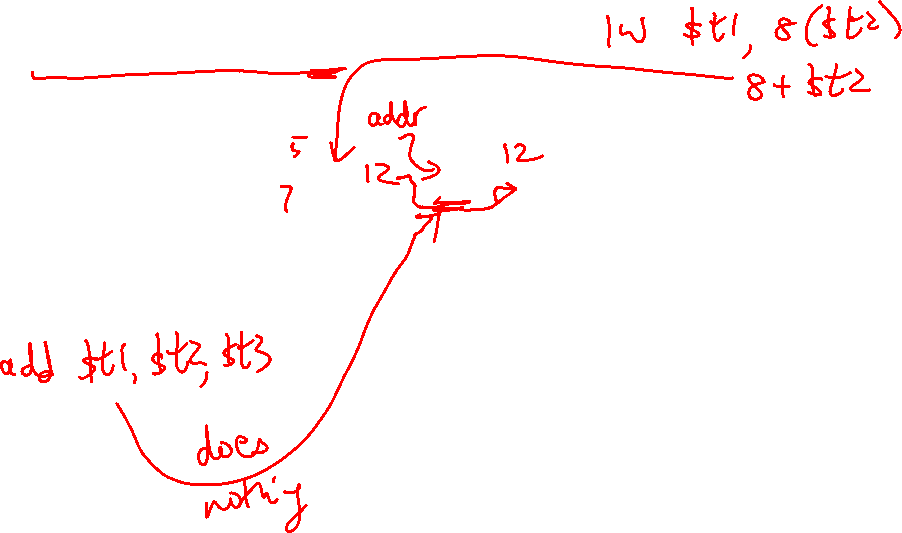 lw $t1, 8($t2)
8+ $t2
addr
5
12
12
7
add $t1, $t2, $t3
does
nothing